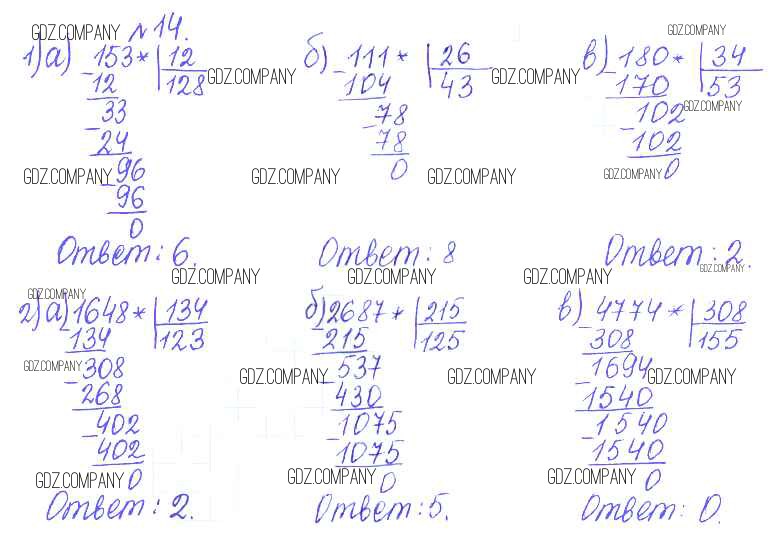 GDZ.COMPANY №14. GDZ.COMPANY
1) а) 153* | 12 б) 111* | 26 в) 180* | 34
12 | 128 GDZ.COMPANY 104 | 43 GDZ.COMPANY 170 | 53
33 78 102 GDZ.COMPANY
24 78 102
GDZ.COMPANY 96 GDZ.COMPANY 0 GDZ.COMPANY GDZ.COMPANY 0
96
0
Ответ: 6. Ответ: 8 Ответ: 2.
GDZ.COMPANY GDZ.COMPANY GDZ.COMPANY GDZ.COMPANY
GDZ.COMPANY
2) а) 1648* | 134 б) 2687* | 215 в) 4774* | 308
134 | 123 215 | 125 308 | 155
GDZ.COMPANY 308 537 1694
268 GDZ.COMPANY 430 GDZ.COMPANY 1540 GDZ.COMPANY
402 1075 1540
402 1075 1540
GDZ.COMPANY 0 GDZ.COMPANY 0 GDZ.COMPANY 0
Ответ: 2. Ответ: 5. Ответ: 0.